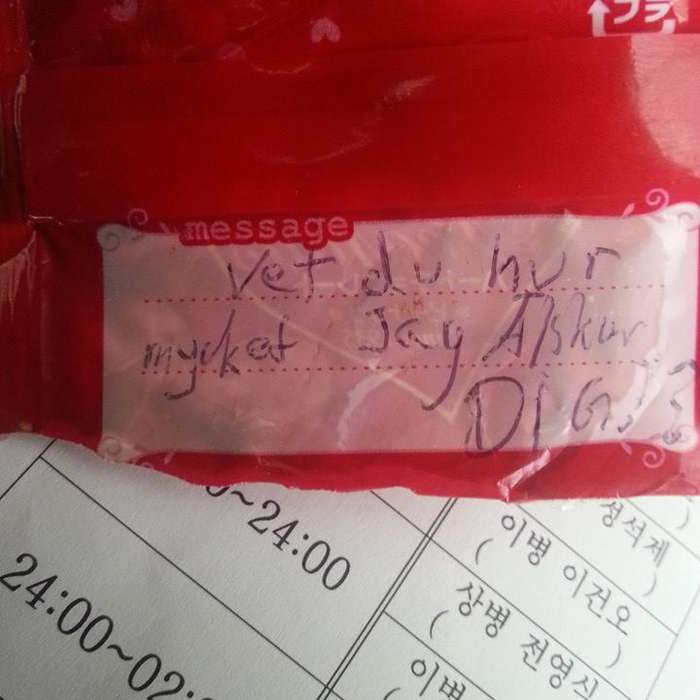 プラ
message
vet du hur
mycket Jag Älskar
DIG!?
~24:00
24:00~02:
정석제
이병 이건오
( )
상병 전영식
( )
이병